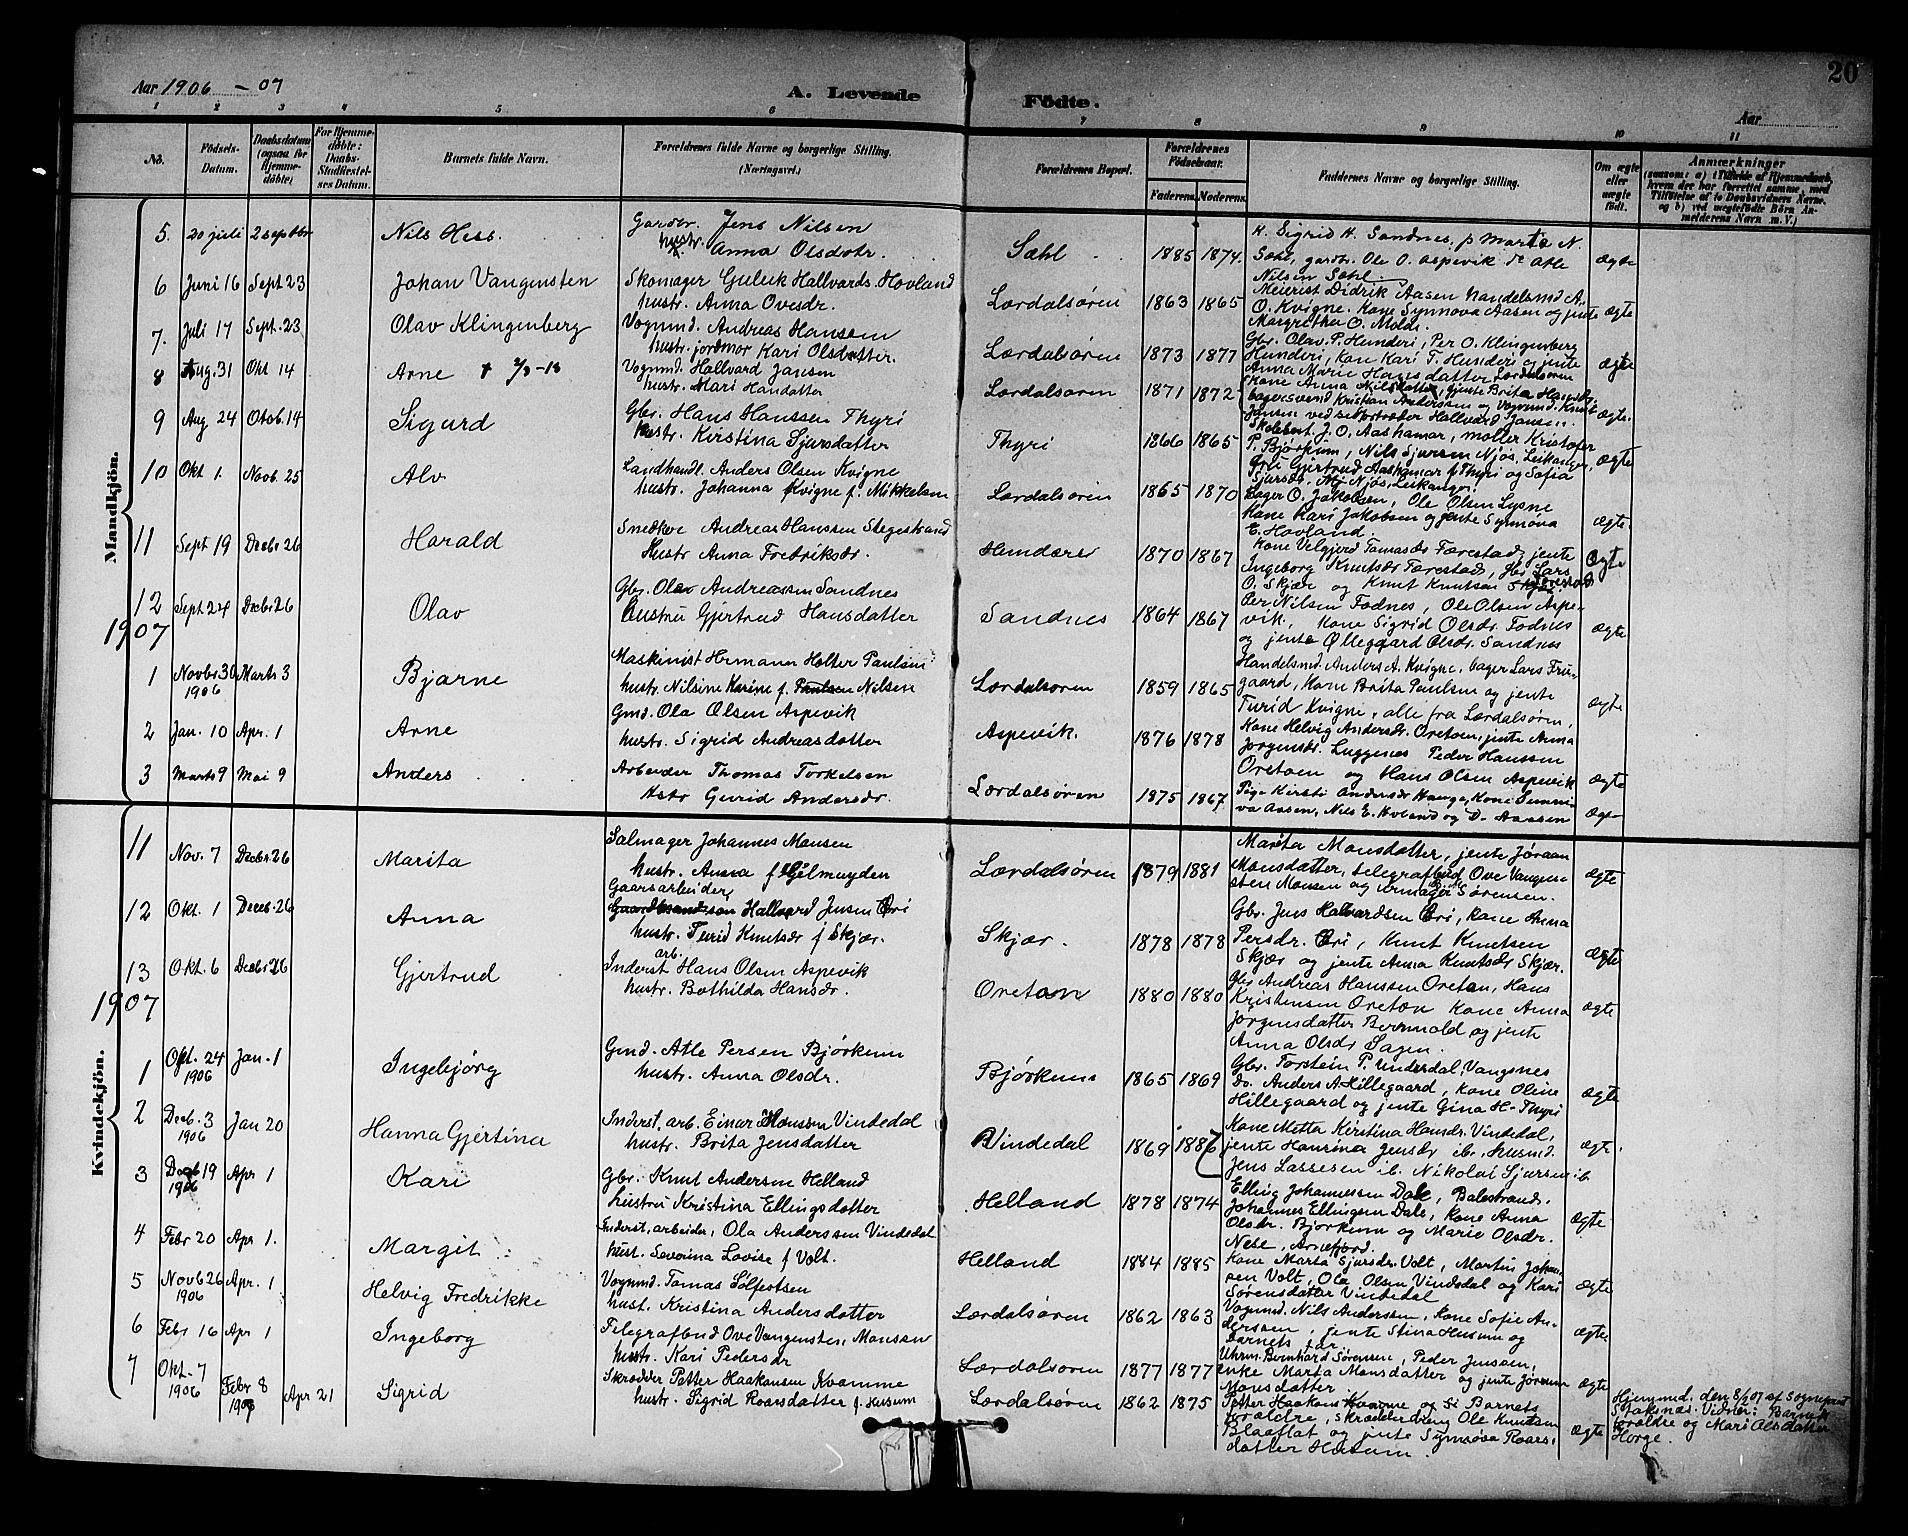 20
Aar 1906 – 07
A. Levende Födte.
Aar
1 2 3 4 5 6 7 8 9 10 11
No.
Födsels-Datum.
Daabsdatum (ogsaa for Hjemme-döbte)
For Hjemme-döbte: Daabs-Stadfæstel-ses Datum.
Barnets fulde Navn.
Forældrenes fulde Navne og borgerlige Stilling. (Næringsvei.)
Forældrenes Bopæl.
Forældrenes Födselsaar.
Faderens. Moderens.
Faddernes Navne og borgerlige Stilling.
Om ægte eller uægte født.
Anmærkninger
(saasom: a) i Tilfælde af Hjemmedaab, hvem der har forrettet samme, med Tilföielse af to Daabsvidners Navne, og b) ved uægtefödte Börn An-melderens Navn m. V.)
Mandkjön.
5. 20 juli 2 septbr Nils Hess Gardbr. Jens Nilsen
hustr. Anna Olsdotr. Sæhl 1885 1874.
H. Sigrid H. Sandnes, p Marta N.
Sæhl, gardbr. Ole O. Aspevik Atle
Nilsen Sæhl. ægte
6 Juni 16 Sept 23 Johan Vangensten Skomager Gulleik Hallvards. Hovland
hustr. Anna Ovesdr. Lærdalsøren 1863 1865
Meierist Didrik Aasen handelsmd A.
O. Kvigne. Kone Synnøva Aasen og jente
Margretha O. Molde. ægte
7. Juli 17 Sept. 23 Olav Klingenberg Vognmd. Andreas Hansen
hustr. jordmor Kari Olsdatter. Lærdalsøren 1873 1877
Gbr. Olav P. Hunderi, Per O. Klingenberg
Hunderi, kone Kari T. Hunderi og jente
Anna Marie Hansdatter Lærdalsøren ægte
8 Aug. 31 Okt 14 Arne † 7/3-18 Vognmd. Hallvard Jansen
hustr. Mari Hansdatter Lærdalsøren 1871 1872
Kone Anna Nilsdatter, jente Brita
bagersvend Kristian Andersen og Vognmd. Knut
Jansen ved Hallvard Jansen. ægte.
9 Aug 24 Oktob. 14 Sigurd Gbr. Hans Hanssen Thyri
hustr. Kirstina Sjursdatter Thyri 1866 1865
J. O. Aashamar, møller Kristofer
P. Bjørkum, Nils Sjursen Njøs, Leikanger,
Gjertrud Aashamar f Thyri og Sofia
Sjursdr. Njøs, Leikanger. ægte
10 Okt 1. Novb. 25 Alv Landhandl. Anders Olsen Kvigne
hustr. Johanna Kvigne f. Mikkelsen Lærdalsøren 1865 1870
Bager O. Jakobsen, Ole Olsen Lysne
Kone Kari Jakobsen og jente Synnøva
E. Hovland. ægte.
11 Sept 19 Decbr 26 Harald Snedker Andreas Hanssen Stegestrand
Hustr Anna Fredriksdr. Hunderi 1870 1867
Kone Velgjerd Tomasdr Færestad, jente
Ingeborg Knutsdr Færestad, Gbr Lars
O. Skjær og Knut Knutsen Færestad ægte
12 Sept 24 Decbr 26 Olav Gbr. Olav Andreassen Sandnes
hustru Gjertrud Hansdatter Sandnes 1864 1867
Per Nilsen Fodnes, Ole Olsen Aspe-
vik, Kone Sigrid Olsdr. Fodnes
og jente Øllegaard Olsdr. Sandnes ægte
1907
1 Novbr 30 1906 Marts 3 Bjarne Maskinist Hermann Holter Paulsen
hustr. Nilsine Karine f. Paulsen Nilsen Lærdalsøren 1859 1865
Handelsmd. Anders A. Kvigne, bager Lars Fru-
gaard, Kone Brita Paulsen og jente
Turid Kvigne, alle fra Lærdalsøren, ægte
2 Jan. 10 Apr. 1 Arne Gmd. Ola Olsen Aspevik
hustr. Sigrid Andreasdatter Aspevik. 1876 1878
Kone Helvig Andersdr. Øretoen, jente Anna
Jørgensdr. Luggenes Peder Hanssen
Øretoen og Hans Olsen Aspevik ægte
3 Marts 9 Mai 9 Anders Arbeider Thomas Torkelsen
Hstr Gurid Andersdr. Lærdalsøren 1875 1867
Pige Kirsti Andersdr Hauga, Kone
Aasen, Nils E. Hovland og D. Aassen ægte
Kvindekjön.
11 Nov. 7 Decbr. 26 Marita Salmager Johannes Monsen
hustr. Anna f Gilmuyden Lærdalsøren 1879 1881
Marita Monsdatter, jente Jøraan
Monsdatter, telegrafbud Ove Vangen-
sten Monsen og urmager B. Sørensen. ægte
12 Okt. 1 Deceb. 26 Anna Gaarsarbeider Hallvard Jensen Øri
hustr. Turid Knutsdr f Skjær. Skjær. 1878 1878
Gbr. Jens Halvardsen Øri, Kone Anna
Persdr. Øri, Knut Knutsen
Skjær og jente Anna Knutsdr Skjær. ægte
13 Okt. 6 Decbr 26 Gjertrud Inderst arb. Hans Olsen Aspevik
hustr. Bothilda Hansdr. Øretoen 1880 1880
Gbr Andreas Hanssen Øretoen, Hans
Kristensen Øretoen Kone Anna
Jørgensdatter Bermald og jente
Anna Olsdr Sagen. ægte
1907
1 Okt. 24 1906 Jan. 1 Ingebjørg Gmd. Atle Persen Bjørkum
hustr. Anna Olsdr. Bjørkum 1865 1869
Gbr. Torstein P. Underdal, Vangsnes
Do. Anders A. Hillegaard, Kone Oline
Hillegaard og jente Gina H. Thyri ægte
2 Decb. 3 1906 Jan 20 Hanna Gjertina Inderst. arb. Einar Monssen Vindedal
hustr. Brita Jensdatter Vindedal 1869 1887
Kone Metta Kirstina Hansdr. Vindedal,
jente Hansina Jensdr ib. Husmd.
Jens Lassesen ib. Nikolai Sjursen ib. ægte.
3 Decb 19 1906 Apr 1 Kari Gbr. Knut Andersen Helland
hustru Kristina Ellingsdatter Helland 1878 1874
Elling Johannessen Dale, Balestrand.
Johannes Ellingsen Dale, Kone Anna
Olsdr. Bjørkum og Marie Olsdr.
Nese, Arnefjord. ægte
4 Febr 20 Apr 1. Margit Inderst, arbeider, Ola Anderssen Vindedal
hust. Severina Lovise f Volt. Helland 1884 1885
Kone Marta Sjursdr. Volt, Martin Johan-
sen Volt, Ola Olsen Vindedal og Kari
Sørensdatter Vindedal ægte
5 Novb 26 1906 Apr. 1 Helvig Fredrikke Vognmd. Tomas Sølfestsen
hust. Kristina Andersdatter Lærdalsøren 1862 1863
Vognmd. Nils Anderssen, Kone Sofie An-
derssen, jente Stina Husum og
barnets far. ægte
6 Febr 16 Apr 1 Ingeborg Telegrafbud Ove Vangensten Monsen
hustr. Kari Pedersdr Lærdalsøren 1877 1877
Uhrm. Bernhard Sørensen, Peder Jenssen,
enke Marta Monsdatter og jente Jøraan
Monsdatter ægte
7 Okt. 7 1906 Febr 8 Apr 21 Sigrid Skrædder Petter Haakonsen Kvamme
hustr. Sigrid Roarsdatter f. Husum Lærdalsøren 1862 1875
Petter Haakons. Kvamme og Barnets
forældre, skrædderdreng Ole Knutsen
Blaaflat og jente Synnøva Roars-
datter Husum. ægte
Hjemmd. den 8/2 07 af Sogneprest
S. Jaksnæs. Vidner: Barnets
forældre og Mari Olsdatter
Horge.